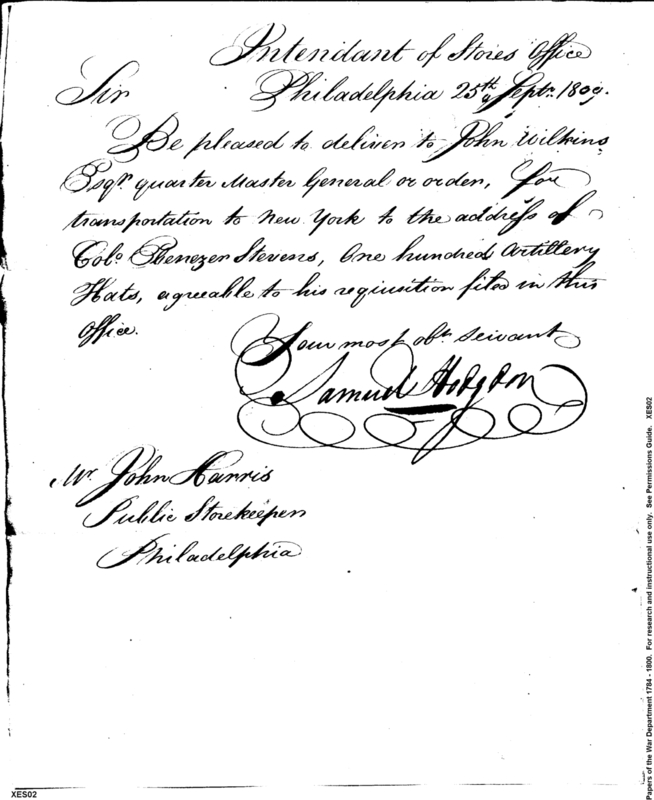 Intendant of Stores Office
Philadelphia 25th Septr. 1800.
Sir
Be pleased to deliver to John Wilkins
Esqr. quarter Master General or order, for
transportation to New York to the address of
Colo. Ebenezer Stevens, One hundred Artillery
Hats, agreeable to his requisition filed in this
Office.
Your most obt. servant
Samuel Hodgdon
Mr. John Harris
Public Storekeeper
Philadelphia
Papers of the War Department 1784 - 1800. For research and instructional use only. See Permissions Guide. XES02
XES02